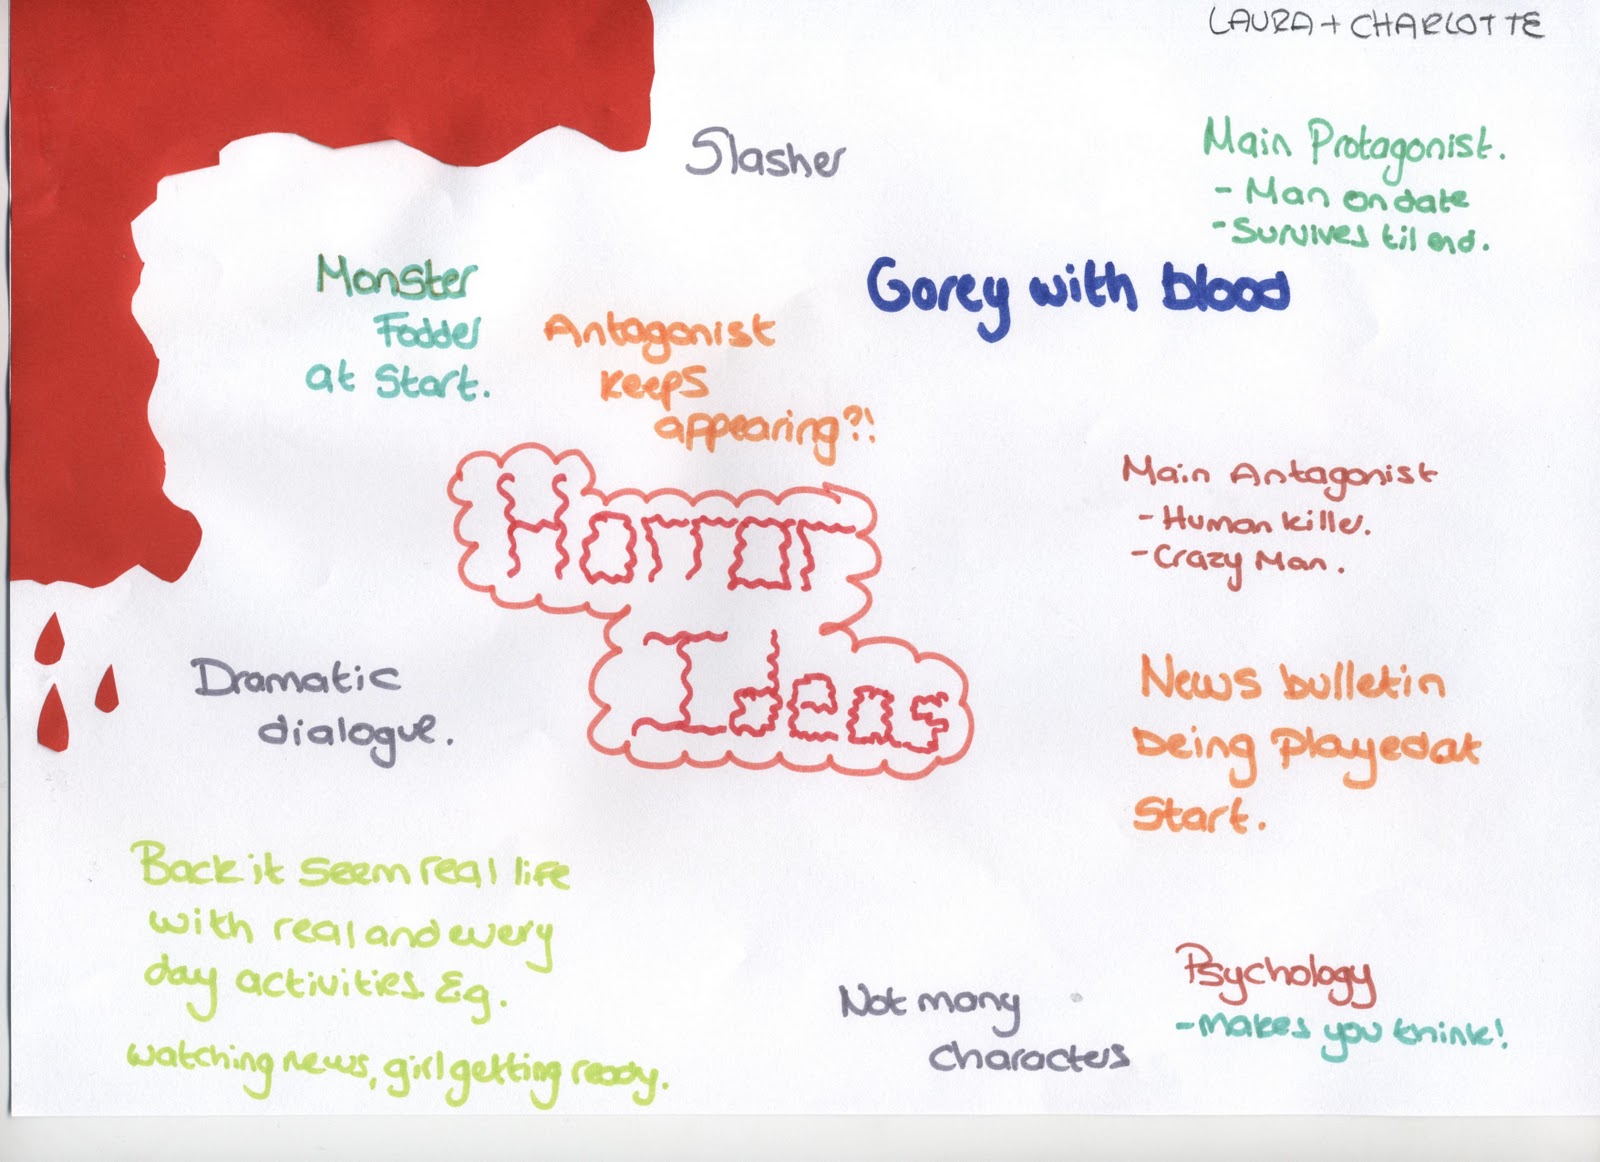 LAURA + CHARLOTTE
Slasher
Main Protagonist.
- Man on date
- Survives til end.
Gorey with blood
Monster
Fodder
at Start.
Antagonist
keeps
appearing?!
Horror
Ideas
Main Antagonist
- Human killer.
- Crazy Man.
Dramatic
dialogue.
News bulletin
being played at
Start.
Back it seem real life
with real and every
day activities Eg.
watching news, girl getting ready.
Not many
characters
Psychology
- makes you think!